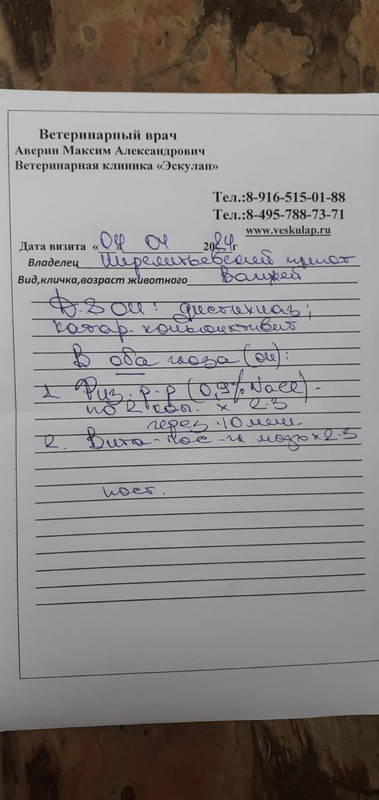 Ветеринарный врач
Аверин Максим Александрович
Ветеринарная клиника «Эскулап»
Тел.:8-916-515-01-88
Тел.:8-495-788-73-71
www.veskulap.ru
Дата визита «04 04 2024г
Владелец Шереметьевский приют
Вид,кличка,возраст животного
D-S OU: дистихиаз;
катар. конъюнктивит
В оба глаза (OU):
1. Физ. р-р (0,9% NaCl) -
по 2 кап. x 2-3
через 10 мин.
2. Вита-пос-гл. мазь x 2-3
пост.